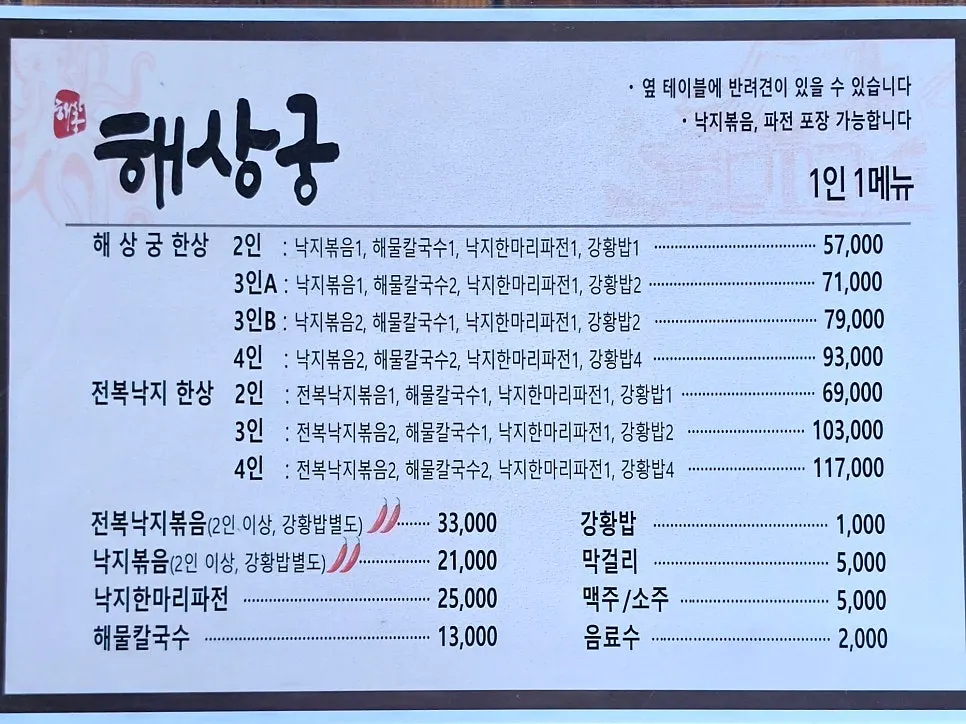 · 옆 테이블에 반려견이 있을 수 있습니다
· 낙지볶음, 파전 포장 가능합니다
해상궁
1인 1메뉴
해 상 궁 한상 2인 : 낙지볶음1, 해물칼국수1, 낙지한마리파전1, 강황밥1 57,000
3인A : 낙지볶음1, 해물칼국수2, 낙지한마리파전1, 강황밥2 71,000
3인B : 낙지볶음2, 해물칼국수1, 낙지한마리파전1, 강황밥2 79,000
4인 : 낙지볶음2, 해물칼국수2, 낙지한마리파전1, 강황밥4 93,000
전복낙지 한상 2인 : 전복낙지볶음1, 해물칼국수1, 낙지한마리파전1, 강황밥1 69,000
3인 : 전복낙지볶음2, 해물칼국수1, 낙지한마리파전1, 강황밥2 103,000
4인 : 전복낙지볶음2, 해물칼국수2, 낙지한마리파전1, 강황밥4 117,000
전복낙지볶음(2인 이상, 강황밥별도) 33,000
낙지볶음(2인 이상, 강황밥별도) 21,000
낙지한마리파전 25,000
해물칼국수 13,000
강황밥 1,000
막걸리 5,000
맥주/소주 5,000
음료수 2,000